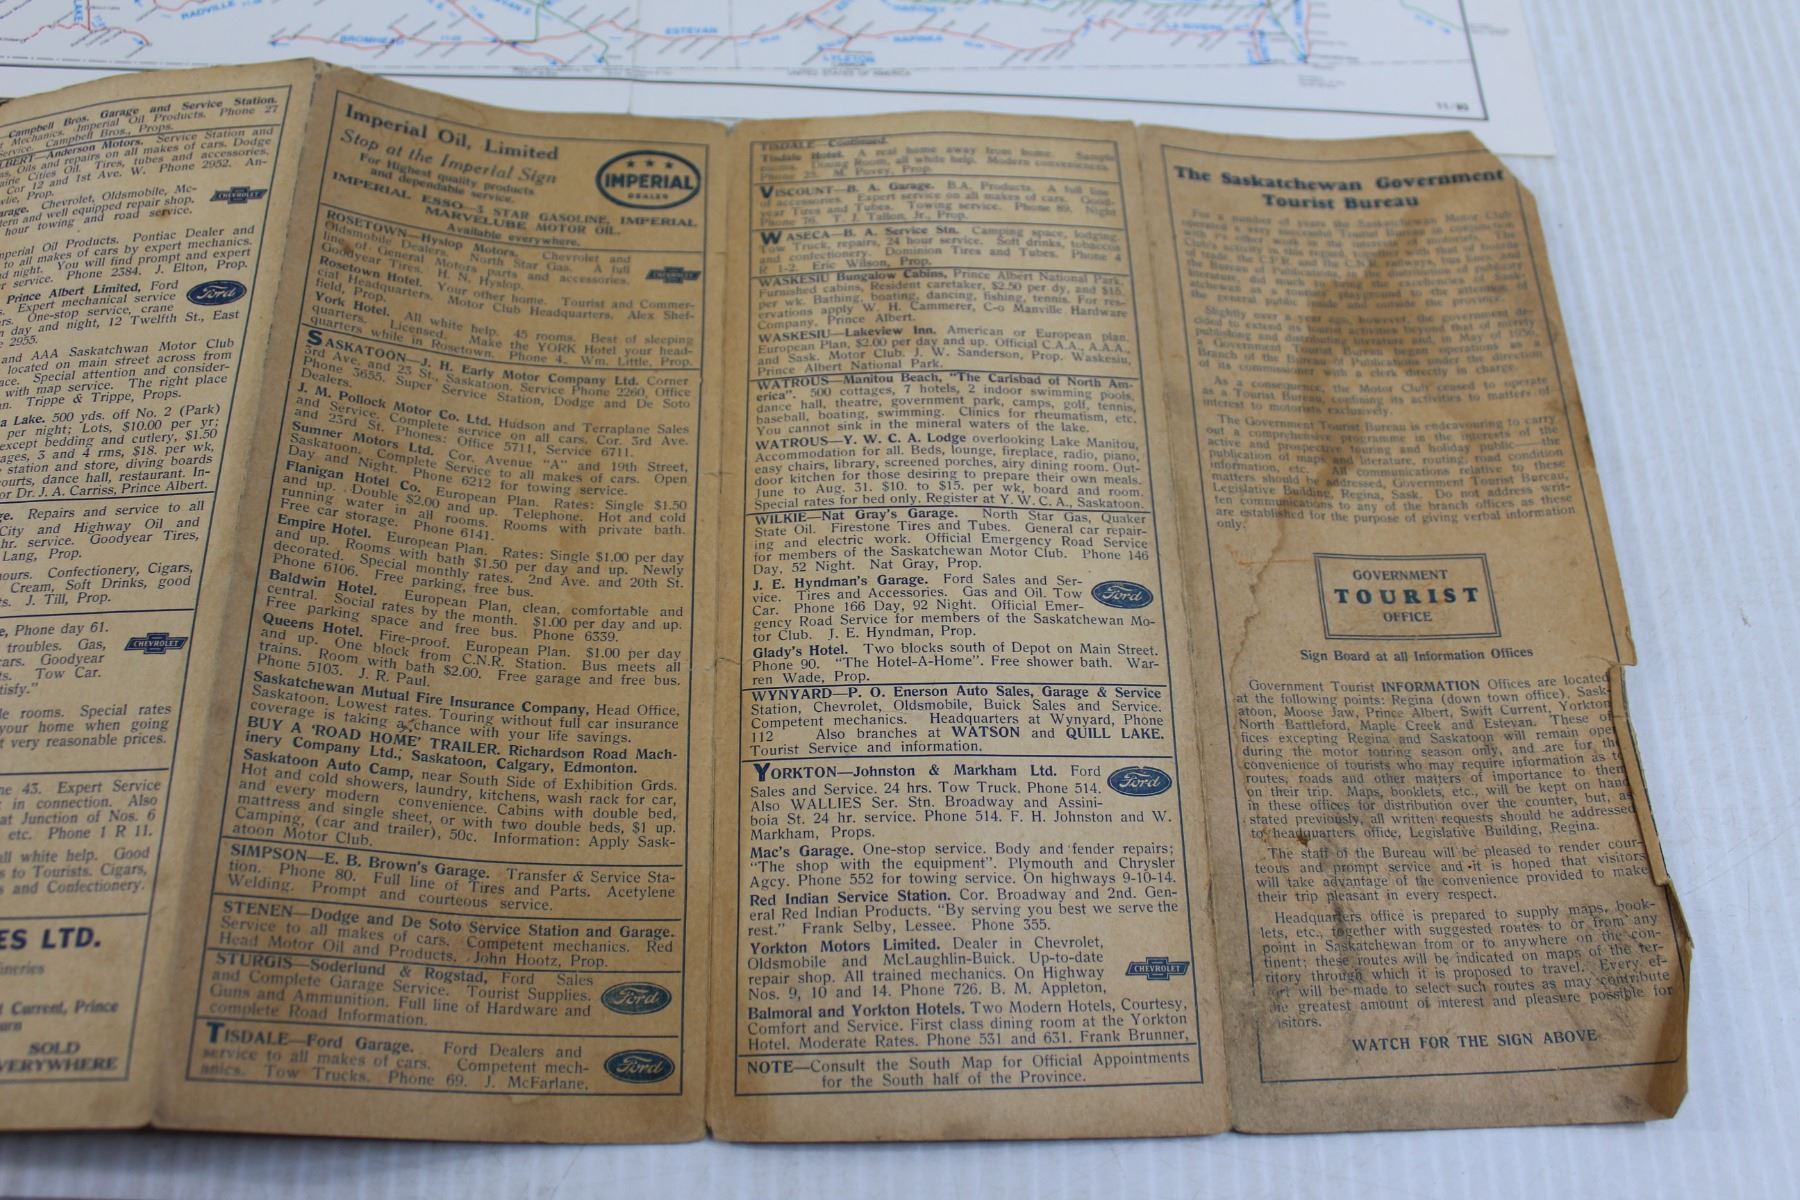 RADVILLE
BROMHEAD
ESTEVAN
UNITED STATES OF AMERICA
11/80
Campbell Bros. Garage and Service Station.
Mechanics. Imperial Oil Products. Phone 27
Service. Campbell Bros., Props.
LBERT—Anderson Motors. Service Station and
Oils and repairs on all makes of cars. Dodge
Cities Oil. Tires, tubes and accessories.
Cor 12 and 1st Ave. W. Phone 2952. An-
Prop.
arage. Chevrolet, Oldsmobile, Mc-
ern and well equipped repair shop.
hour towing and road service.
CHEVROLET
perial Oil Products. Pontiac Dealer and
to all makes of cars by expert mechanics.
d night. You will find prompt and expert
r service. Phone 2384. J. Elton, Prop.
Prince Albert Limited, Ford
Expert mechanical service
rs. One-stop service, crane
n day and night, 12 Twelfth St., East
2955.
Ford
and AAA Saskatchwan Motor Club
located on main street across from
ace. Special attention and consider-
with map service. The right place
n. Trippe & Trippe, Props.
a Lake. 500 yds. off No. 2 (Park)
per night; Lots, $10.00 per yr;
except bedding and cutlery, $1.50
ages, 3 and 4 rms, $18. per wk,
station and store, diving boards
ourts, dance hall, restaurant. In-
or Dr. J. A. Carriss, Prince Albert.
ge. Repairs and service to all
City and Highway Oil and
hr. service. Goodyear Tires,
Lang, Prop.
ours. Confectionery, Cigars,
Cream, Soft Drinks, good
ts. J. Till, Prop.
e, Phone day 61.
troubles. Gas,
cars. Goodyear
ts. Tow Car.
tisfy."
CHEVROLET
le rooms. Special rates
your home when going
t very reasonable prices.
ne 43. Expert Service
in connection. Also
at Junction of Nos. 6
etc. Phone 1 R 11.
all white help. Good
s to Tourists. Cigars,
s and Confectionery.
ES LTD.
fineries
t Current, Prince
SOLD
EVERYWHERE
Imperial Oil, Limited
Stop at the Imperial Sign
For Highest quality products
and dependable service.
IMPERIAL ESSO—3 STAR GASOLINE, IMPERIAL
MARVELUBE MOTOR OIL.
Available everywhere.
IMPERIAL
DEALER
ROSETOWN—Hyslop Motors. Chevrolet and
Oldsmobile Dealers. North Star Gas. A full
line of General Motors parts and accessories.
Goodyear Tires. H. N. Hyslop.
CHEVROLET
Rosetown Hotel. Your other home. Tourist and Commer-
cial Headquarters. Motor Club Headquarters. Alex Shef-
field, Prop.
York Hotel. All white help. 45 rooms. Best of sleeping
quarters. Licensed. Make the YORK Hotel your head-
quarters while in Rosetown. Phone 4. Wm. Little, Prop.
SASKATOON—J. H. Early Motor Company Ltd. Corner
3rd Ave. and 23 St., Saskatoon. Service Phone 2260, Office
Phone 3655. Super Service Station, Dodge and De Soto
Dealers.
J. M. Pollock Motor Co. Ltd. Hudson and Terraplane Sales
and Service. Complete service on all cars. Cor. 3rd Ave.
and 23rd St. Phones: Office 5711, Service 6711.
Sumner Motors Ltd. Cor. Avenue "A" and 19th Street,
Saskatoon. Complete Service to all makes of cars. Open
Day and Night. Phone 6212 for towing service.
Flanigan Hotel Co. European Plan. Rates: Single $1.50
and up. Double $2.00 and up. Telephone. Hot and cold
running water in all rooms. Rooms with private bath.
Free car storage. Phone 6141.
Empire Hotel. European Plan. Rates: Single $1.00 per day
and up. Rooms with bath $1.50 per day and up. Newly
decorated. Special monthly rates. 2nd Ave. and 20th St.
Phone 6106. Free parking, free bus.
Baldwin Hotel. European Plan, clean, comfortable and
central. Social rates by the month. $1.00 per day and up.
Free parking space and free bus. Phone 6339.
Queens Hotel. Fire-proof. European Plan. $1.00 per day
and up. One block from C.N.R. Station. Bus meets all
trains. Room with bath $2.00. Free garage and free bus.
Phone 5103. J. R. Paul.
Saskatchewan Mutual Fire Insurance Company, Head Office,
Saskatoon. Lowest rates. Touring without full car insurance
coverage is taking a chance with your life savings.
BUY A 'ROAD HOME' TRAILER. Richardson Road Mach-
inery Company Ltd., Saskatoon, Calgary, Edmonton.
Saskatoon Auto Camp, near South Side of Exhibition Grds.
Hot and cold showers, laundry, kitchens, wash rack for car,
and every modern convenience. Cabins with double bed,
mattress and single sheet, or with two double beds, $1 up.
Camping, (car and trailer), 50c. Information: Apply Sask-
atoon Motor Club.
SIMPSON—E. B. Brown's Garage. Transfer & Service Sta-
tion. Phone 80. Full line of Tires and Parts. Acetylene
Welding. Prompt and courteous service.
STENEN—Dodge and De Soto Service Station and Garage.
Service to all makes of cars. Competent mechanics. Red
Head Motor Oil and Products. John Hootz, Prop.
STURGIS—Soderlund & Rogstad, Ford Sales
and Complete Garage Service. Tourist Supplies.
Guns and Ammunition. Full line of Hardware and
complete Road Information.
Ford
TISDALE—Ford Garage. Ford Dealers and
service to all makes of cars. Competent mech-
anics. Tow Trucks. Phone 69. J. McFarlane,
Ford
TISDALE—Continued.
Tisdale Hotel. A real home away from home. Sample
rooms. Dining Room, all white help. Modern conveniences.
Phone 25. M. Povey, Prop.
VISCOUNT—B. A. Garage. B.A. Products. A full line
of accessories. Expert service on all makes of cars. Good-
year Tires and Tubes. Towing service. Phone 89. Night
Phone 76. T. J. Tallon, Jr., Prop.
WASECA—B. A. Service Stn. Camping space, lodging.
Tow Truck, repairs, 24 hour service. Soft drinks, tobaccos
and confectionery. Dominion Tires and Tubes. Phone 4
R 1-2. Eric Wilson, Prop.
WASKESIU Bungalow Cabins, Prince Albert National Park.
Furnished cabins, Resident caretaker, $2.50 per dy, and $15.
per wk. Bathing, boating, dancing, fishing, tennis. For res-
ervations apply W. H. Cammerer, C-o Manville Hardware
Company, Prince Albert.
WASKESIU—Lakeview Inn. American or European plan.
European Plan, $2.00 per day and up. Official C.A.A., A.A.A.,
and Sask. Motor Club. J. W. Sanderson, Prop. Waskesiu,
Prince Albert National Park.
WATROUS—Manitou Beach, "The Carlsbad of North Am-
erica". 500 cottages, 7 hotels, 2 indoor swimming pools,
dance hall, theatre, government park, camps, golf, tennis,
baseball, boating, swimming. Clinics for rheumatism, etc.
You cannot sink in the mineral waters of the lake.
WATROUS—Y. W. C. A. Lodge overlooking Lake Manitou,
Accommodation for all. Beds, lounge, fireplace, radio, piano,
easy chairs, library, screened porches, airy dining room. Out-
door kitchen for those desiring to prepare their own meals.
June to Aug. 31. $10. to $15. per wk, board and room.
Special rates for bed only. Register at Y. W. C. A., Saskatoon.
WILKIE—Nat Gray's Garage. North Star Gas, Quaker
State Oil. Firestone Tires and Tubes. General car repair-
ing and electric work. Official Emergency Road Service
for members of the Saskatchewan Motor Club. Phone 146
Day, 52 Night. Nat Gray, Prop.
J. E. Hyndman's Garage. Ford Sales and Ser-
vice. Tires and Accessories. Gas and Oil. Tow
Car. Phone 166 Day, 92 Night. Official Emer-
gency Road Service for members of the Saskatchewan Mo-
tor Club. J. E. Hyndman, Prop.
Ford
Glady's Hotel. Two blocks south of Depot on Main Street.
Phone 90. "The Hotel-A-Home". Free shower bath. War-
ren Wade, Prop.
WYNYARD—P. O. Enerson Auto Sales, Garage & Service
Station, Chevrolet, Oldsmobile, Buick Sales and Service.
Competent mechanics. Headquarters at Wynyard, Phone
112 Also branches at WATSON and QUILL LAKE.
Tourist Service and information.
YORKTON—Johnston & Markham Ltd. Ford
Sales and Service. 24 hrs. Tow Truck. Phone 514.
Also WALLIES Ser. Stn. Broadway and Assini-
boia St. 24 hr. service. Phone 514. F. H. Johnston and W.
Markham, Props.
Ford
Mac's Garage. One-stop service. Body and fender repairs;
"The shop with the equipment". Plymouth and Chrysler
Agcy. Phone 552 for towing service. On highways 9-10-14.
Red Indian Service Station. Cor. Broadway and 2nd. Gen-
eral Red Indian Products. "By serving you best we serve the
rest." Frank Selby, Lessee. Phone 355.
Yorkton Motors Limited. Dealer in Chevrolet,
Oldsmobile and McLaughlin-Buick. Up-to-date
repair shop. All trained mechanics. On Highway
Nos. 9, 10 and 14. Phone 726. B. M. Appleton,
CHEVROLET
Balmoral and Yorkton Hotels. Two Modern Hotels, Courtesy,
Comfort and Service. First class dining room at the Yorkton
Hotel. Moderate Rates. Phone 531 and 631. Frank Brunner,
NOTE—Consult the South Map for Official Appointments
for the South half of the Province.
The Saskatchewan Government
Tourist Bureau
For a number of years the Saskatchewan Motor Club
operated a very successful Tourist Bureau in conjunction
the general public inside and outside the province.
Slightly over a year ago, however, the government de-
cided to extend its tourist activities beyond that of merely
publishing and distributing literature and, in May of 1936,
a Government Tourist Bureau began operations as a
Branch of the Bureau of Publications under the direction
of its commissioner with a clerk directly in charge.
As a consequence, the Motor Club ceased to operate
as a Tourist Bureau, confining its activities to matters of
interest to motorists exclusively.
The Government Tourist Bureau is endeavouring to carry
out a comprehensive programme in the interests of the
active and prospective touring and holiday public—the
publication of maps and literature, routing, road condition
information, etc. All communications relative to these
matters should be addressed, Government Tourist Bureau,
Legislative Building, Regina, Sask. Do not address writ-
ten communications to any of the branch offices as these
are established for the purpose of giving verbal information
only.
GOVERNMENT
TOURIST
OFFICE
Sign Board at all Information Offices
Government Tourist INFORMATION Offices are located
at the following points: Regina (down town office), Sask-
atoon, Moose Jaw, Prince Albert, Swift Current, Yorkton
North Battleford, Maple Creek and Estevan. These of-
fices excepting Regina and Saskatoon will remain open
during the motor touring season only, and are for the
convenience of tourists who may require information as to
routes, roads and other matters of importance to them
on their trip. Maps, booklets, etc., will be kept on hand
in these offices for distribution over the counter, but, as
stated previously, all written requests should be addressed
to headquarters office, Legislative Building, Regina.
The staff of the Bureau will be pleased to render cour-
teous and prompt service and it is hoped that visitors
will take advantage of the convenience provided to make
their trip pleasant in every respect.
Headquarters office is prepared to supply maps, book-
lets, etc., together with suggested routes to or from any
point in Saskatchewan from or to anywhere on the con-
tinent; these routes will be indicated on maps of the ter-
ritory through which it is proposed to travel. Every ef-
fort will be made to select such routes as may contribute
the greatest amount of interest and pleasure possible for
visitors.
WATCH FOR THE SIGN ABOVE